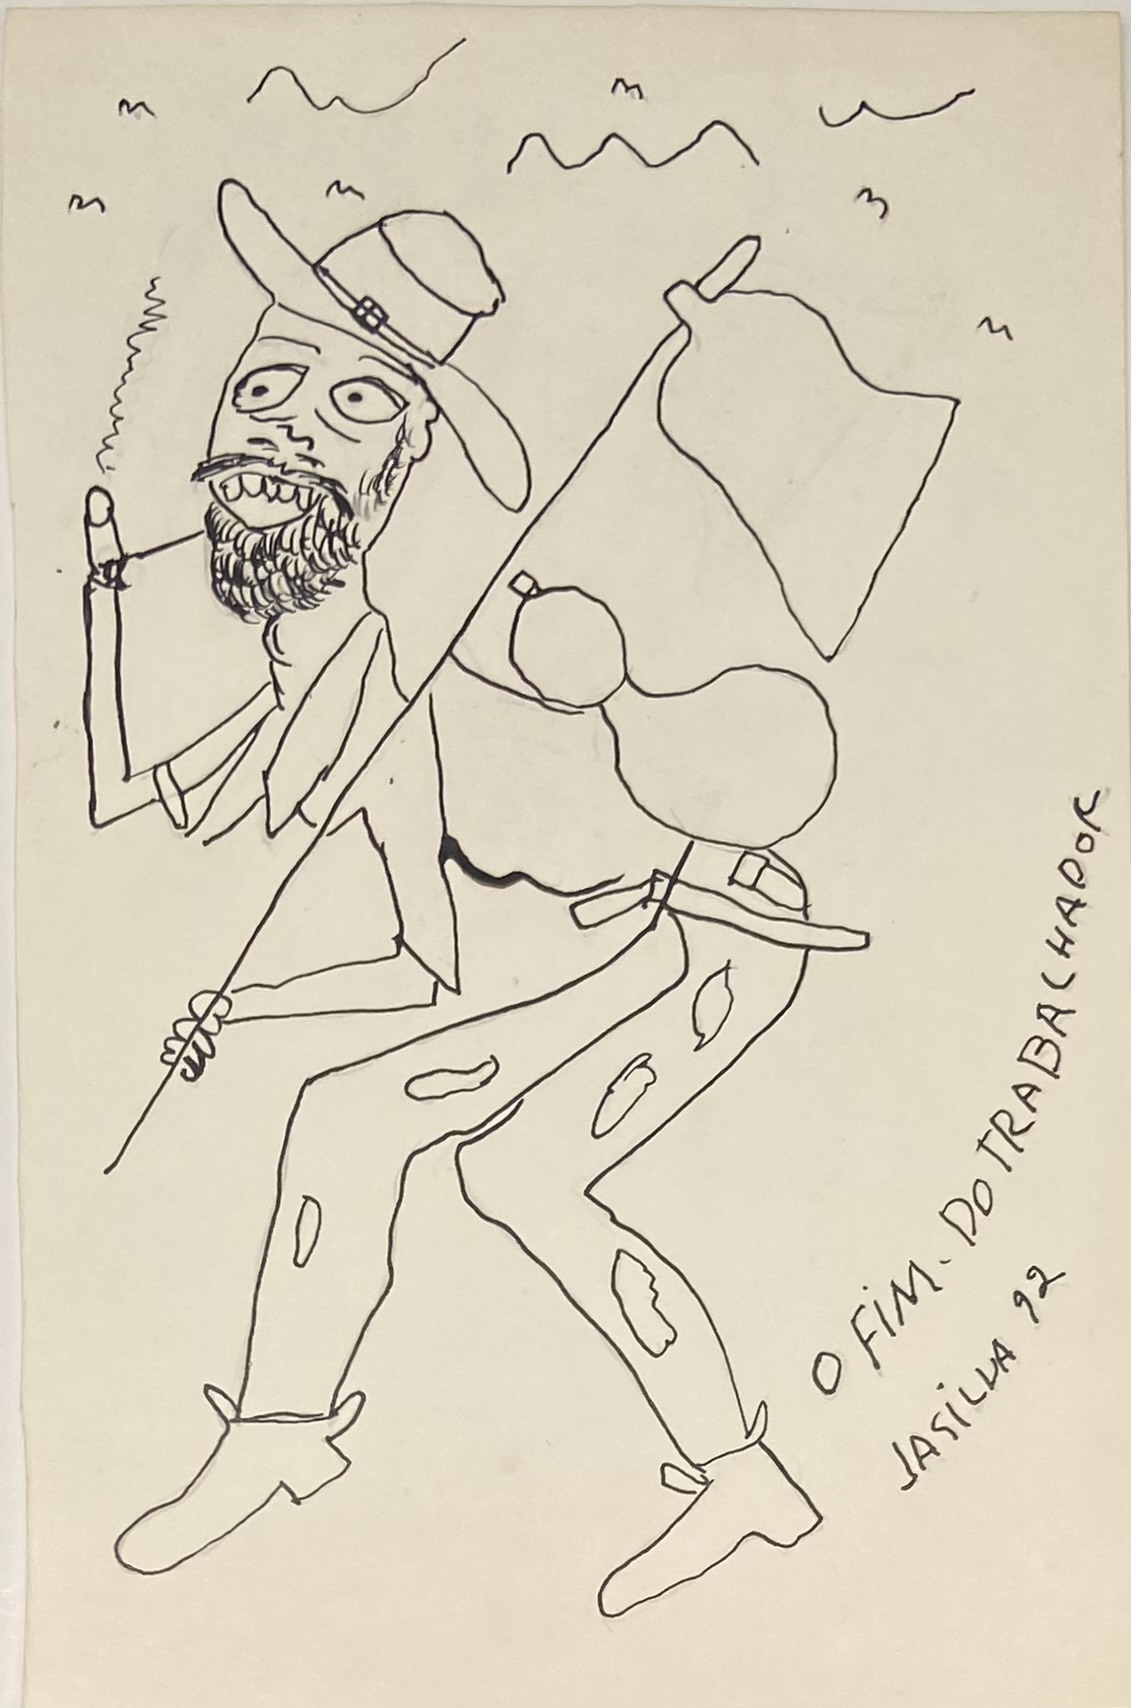 O FIM. DO TRABALHADOR
JASILVA 92